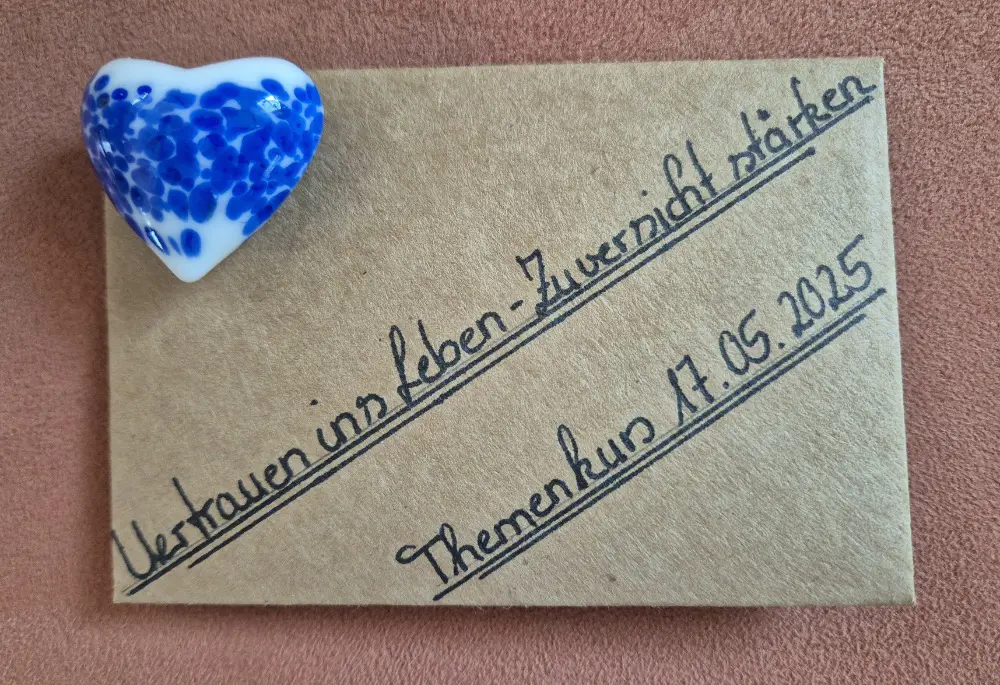 Vertrauen ins Leben - Zuversicht stärken
Themenkurs 17.05.2025